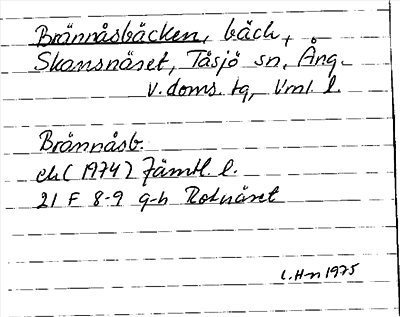 Brännåsbäcken, bäck,
Skansnäset, Tåsjö sn, Ång.
v. doms. tg, Vml. l.
Brännåsb.
ek (1974) Jämtl. l.
21 F 8-9 g-h Rotnäset
C. H-n 1975